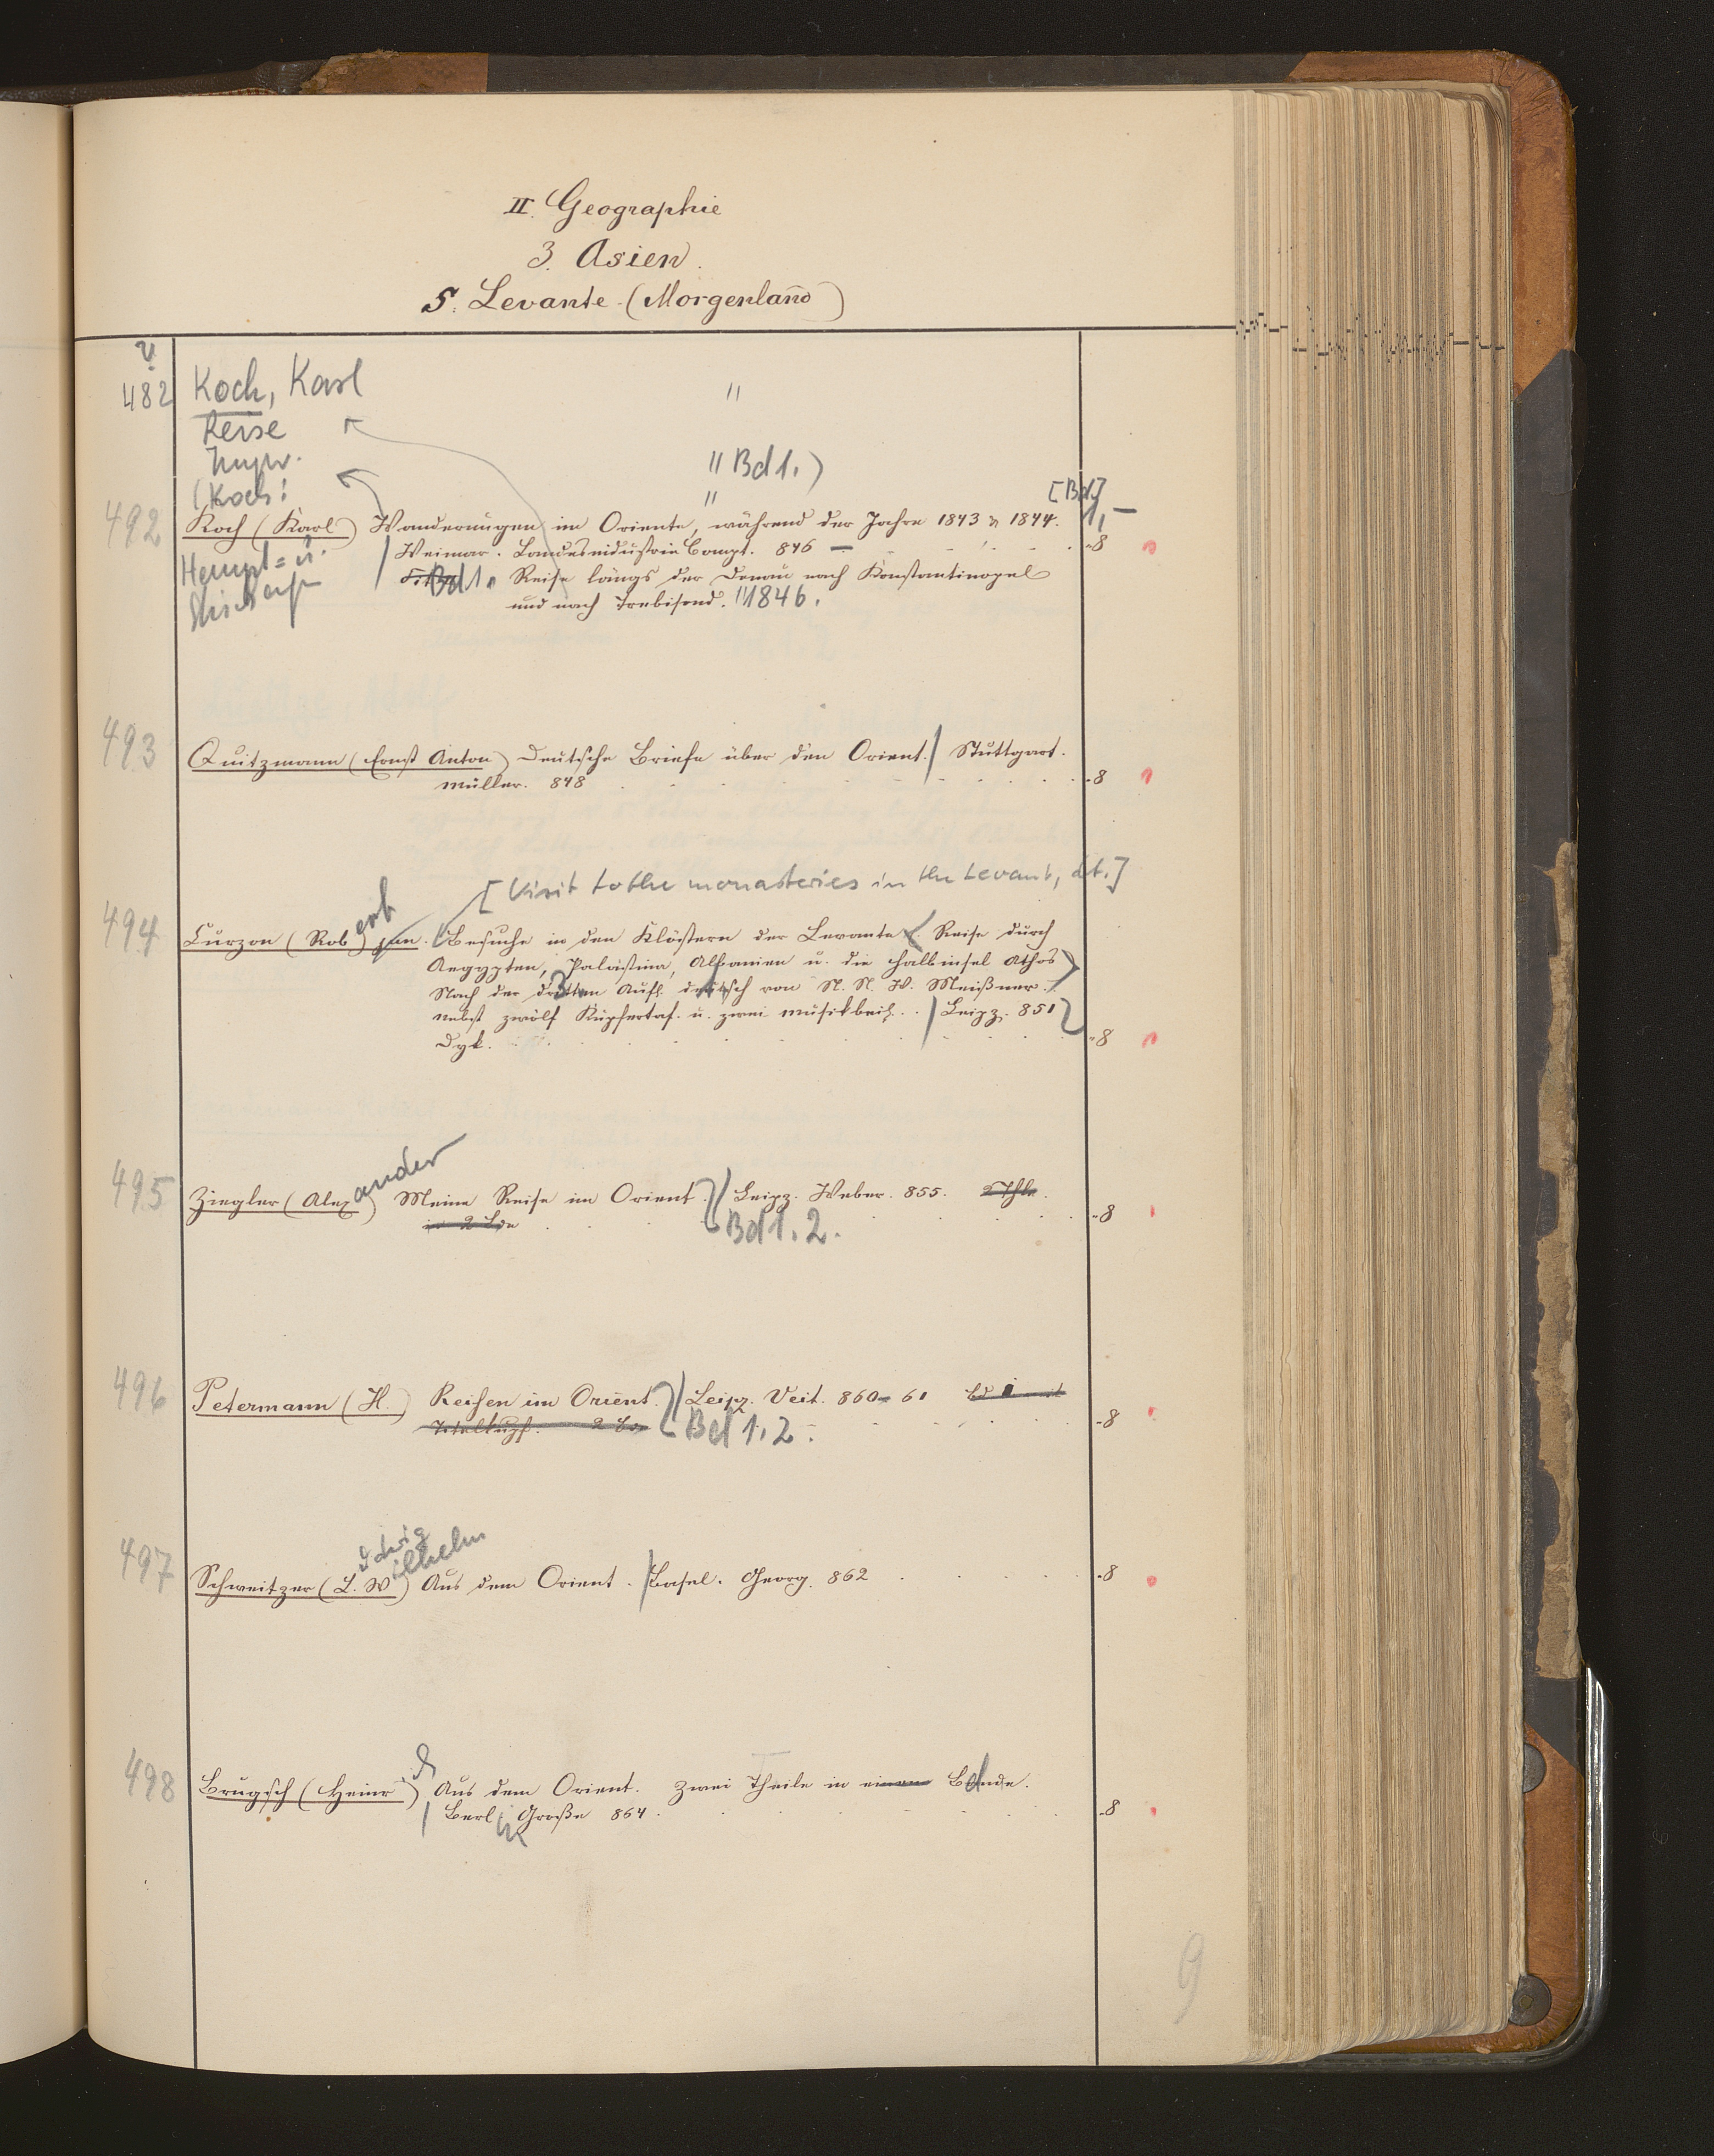 II. Geographie
3. Asien.
5. Levante (Morgenland)
482 Koch, Karl "
Reise
" Bd 1.)
(Koch: "
[Bd]
492 Koch (Karl) Wanderungen im Oriente, während der Jahre 1843 u 1844. 1,-
Hempt= u. Weimar. Landesindustrie Compt. 846 - -8
Bd 1. Reise längs der Donau nach Konstantinopel
und nach Trebisond. " 1846.
493 Quitzmann (Ernst Anton) Deutsche Briefe über den Orient. / Stuttgart.
Müller. 848 -8
[Visit to the monasteries in the Levant, dt.]
494 Curzon (Robert) jun. Besuche in den Klöstern der Levante. Reise durch
Aegypten, Palästina, Albanien u. die Halbinsel Athos
Nach der 3. Aufl. deutsch von N. N. W. Meißner.
nebst zwölf Kupfertaf. u. zwei Musikbeil. / Leipz. 851
Dyk. -8
495 Ziegler (Alexander) Meine Reise im Orient. / Leipz. Weber. 855. 2 Thle.
in 2 Bde Bd 1. 2. -8
496 Petermann (H.) Reisen im Orient. / Leipz. Veit. 860-61
Titelkupf. 2 Bde Bd 1. 2. -8
497 Schweitzer (Ludwig Wilhelm) Aus dem Orient. / Basel. Georg. 862 -8
498 Brugsch (Heinr.) Aus dem Orient. Zwei Theile in einem Bande.
/ Berl. Große 864. -8
9